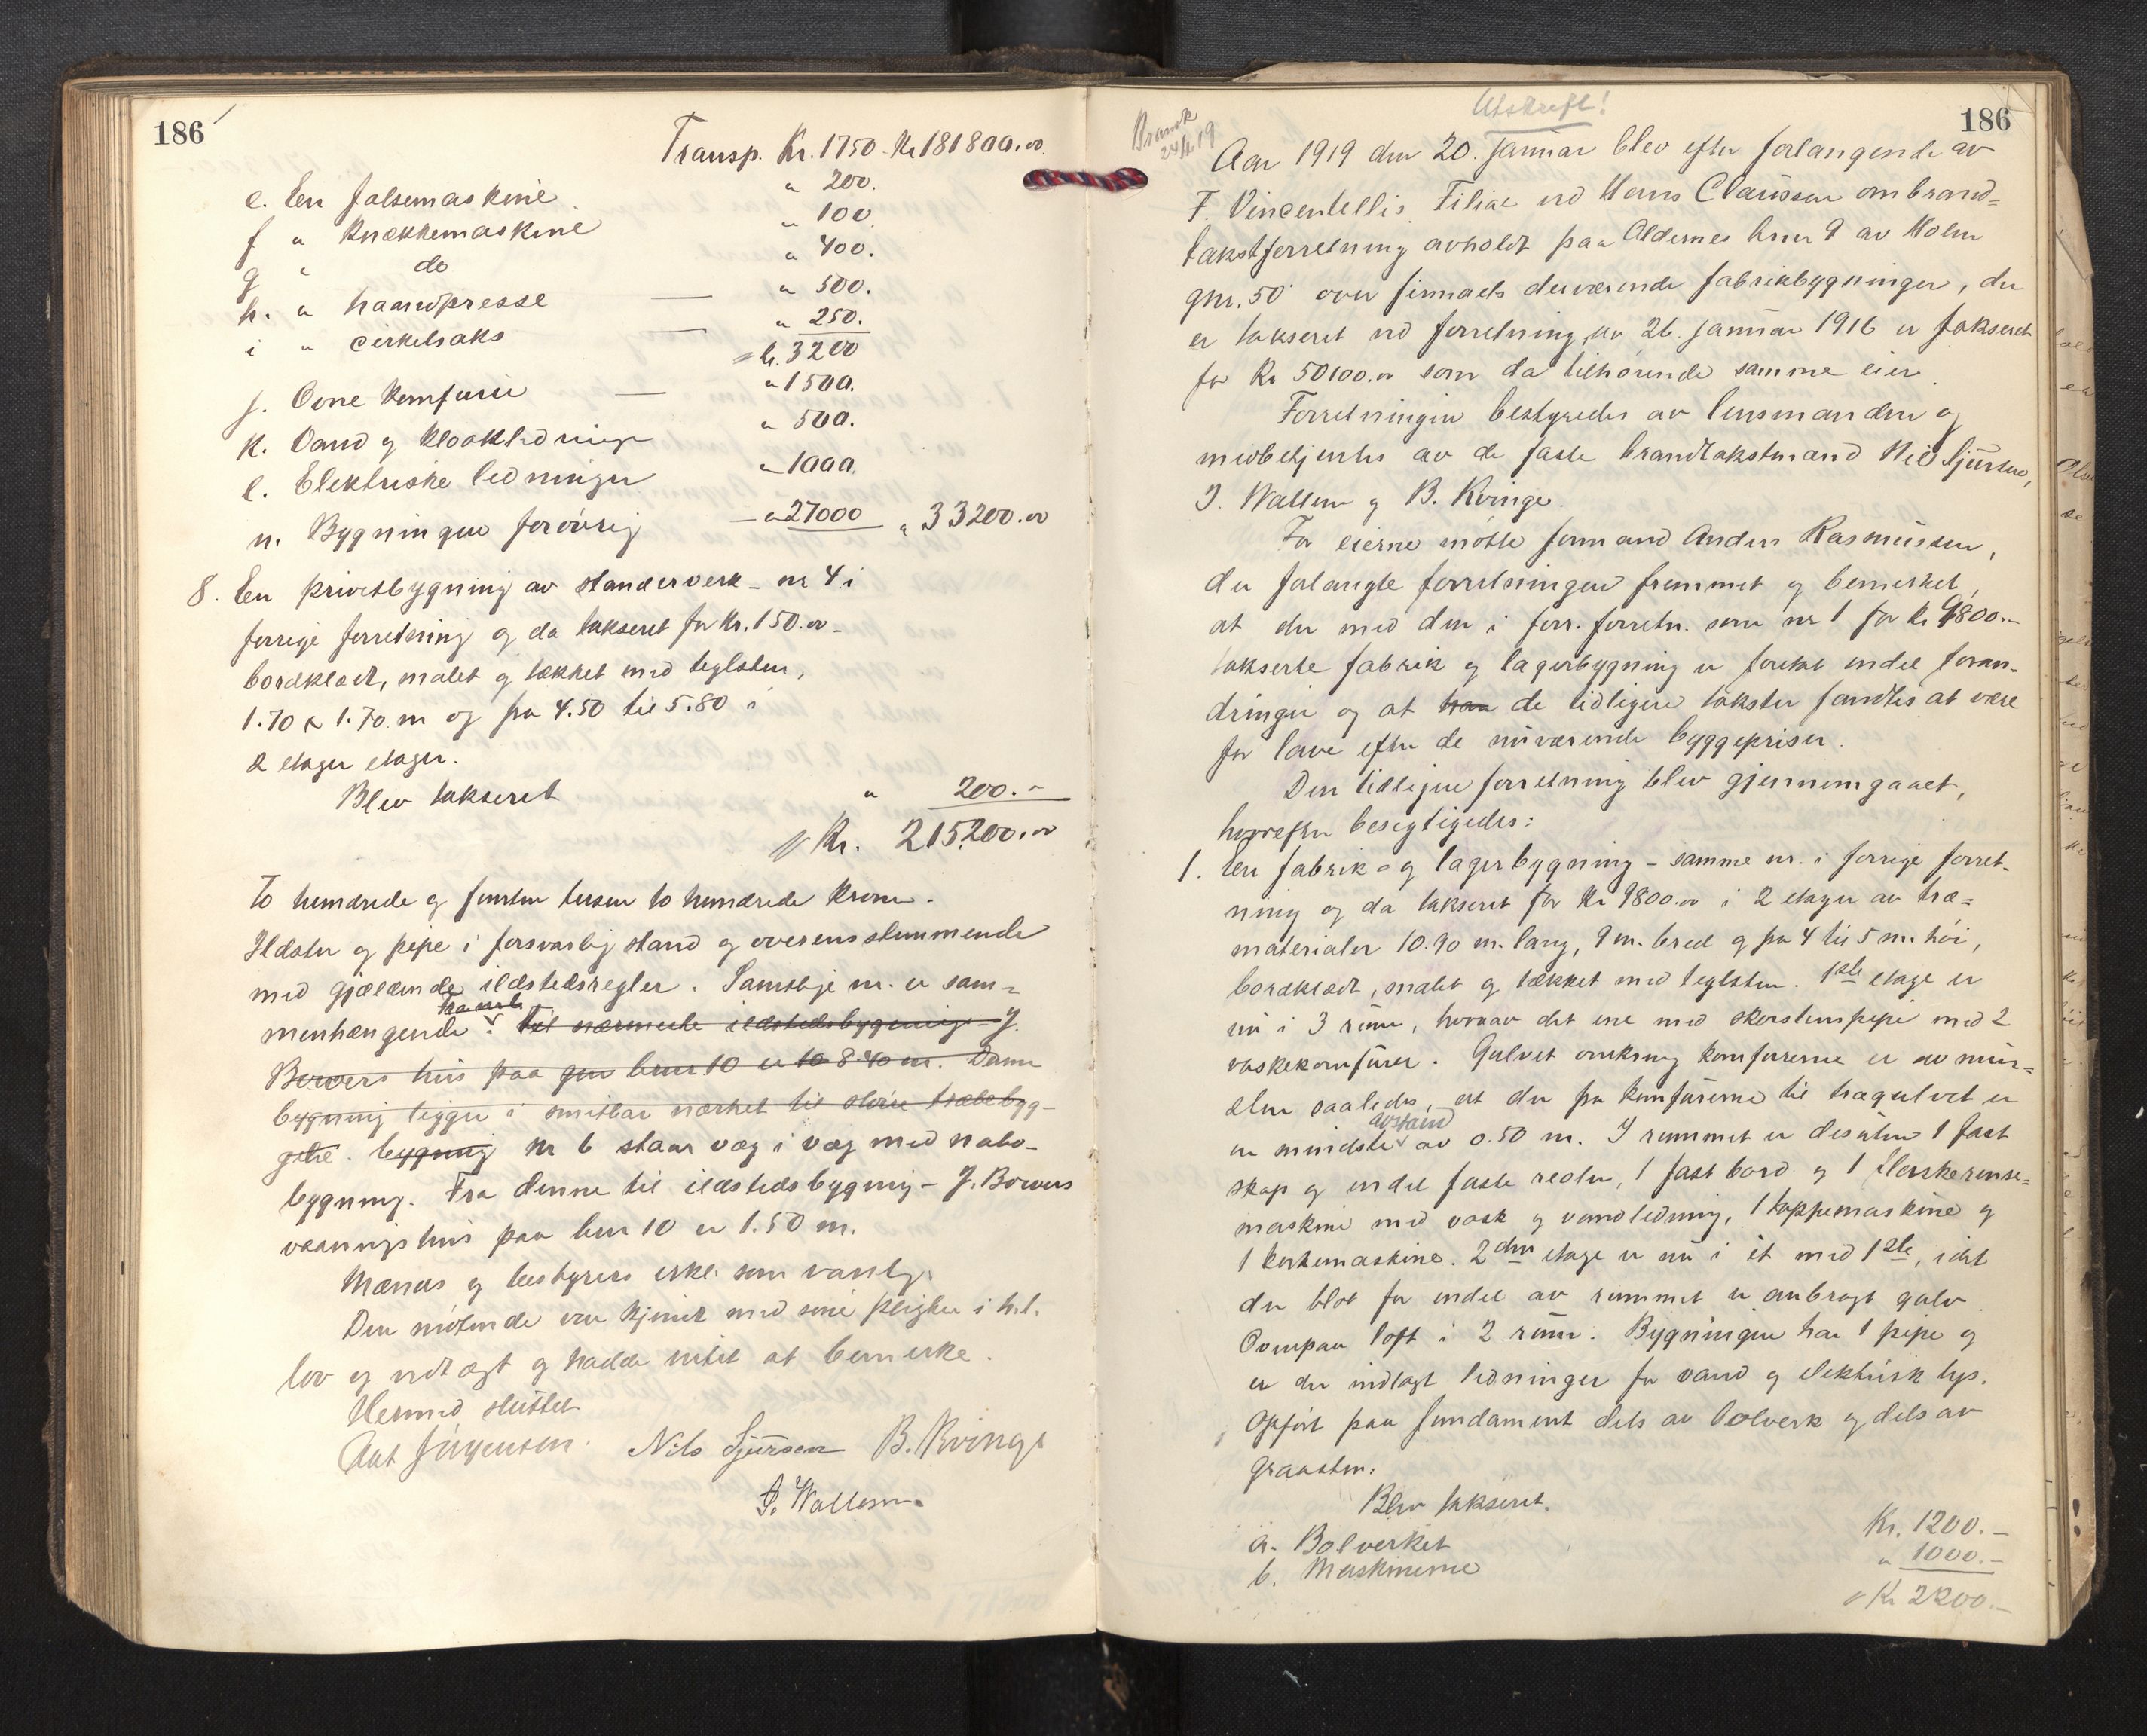 186
Transp. Kr. 1750 - Kr 181800.00
e. En falsemaskine " 200.
f " knækkemaskine " 100
g " do " 400.
h. " haandpresse — " 500.
i " cirkelsaks — " 250.
Kr. 3200
j. Ovne komfurer — " 1500.
k. Vand og kloakledninger " 500.
l. Elektriske ledninger " 1000.
n. Bygningen forøvrig — " 27000 " 33200.00
8. En privetbygning av standerverk - nr 4 i
forrige forretning og da takseret for Kr. 150.00 -
bordklædt, malet og tækket med teglsten,
1.70 x 1.70 m og fra 4.50 til 5.80 i
2 etager etager.
Blev takseret " 200.-
Kr. 215200.00
To hundrede og femten tusen to hundrede kroner.
Ildsteder og pipe i forsvarlig stand og overensstemmende
med gjældende ildstedsregler. Samtlige nr. er sam-
menhængende. Til nærmeste ildstedsbygning - J.
Bowers hus paa gnr bnr 10 er to 8.40 m. Denne
bygning ligger i smitbar nærhet til større træbebyg-
gelse. bygning nr 6 staar væg i væg med nabo-
bygning. Fra denne til ildstedsbygning - J. Bowers
vaaningshus paa bnr 10 er 1.50 m.
Mænds og bestyrers erkl. som vanlig.
Den møtende var kjendt med sine pligter i h.t.
lov og vedtægt og hadde intet at bemerke.
Hermed sluttet
Ant Jørgensen. Nils Sjursen B. Kvinge
J. Wallem.
186
Utskrift!
24/4 19
Aar 1919 den 20. januar blev efter forlangende av
F. Vincentellis Filial ved Hans Claussen en brand-
takstforretning avholdt paa Aldernes bnr 9 av Holm
gnr. 50 over firmaets derværende fabrikbygninger, der
er takseret ved forretning av 26. januar 1916 er takseret
for Kr 50100.00 som da tilhørende samme eier.
Forretningen bestyredes av lensmanden og
medbetjentes av de faste brandtakstmænd Nils Sjursen,
J. Wallem og B. Kvinge.
For eierne møtte formand Anders Rasmussen,
der forlangte forretningen fremmet og bemerket,
at der med den i forr. forretn. som nr 1 for Kr 9800.-
takserte fabrik og lagerbygning er foretat endel foran-
dringer og at han de tidligere takster fandtes at være
for lave efter de nuværende byggepriser.
Den tidligere forretning blev gjennemgaaet,
hvorefter besigtigedes:
1. En fabrik- og lagerbygning - samme nr. i forrige forret-
ning og da takseret for Kr 9800.00 i 2 etager av træ-
materialer 10.90 m. lang, 9 m. bred og fra 4 til 5 m. høi,
bordklædt, malet og tækket med teglsten. 1ste etage er
nu i 3 rum, hvorav det ene med skorstenspipe med 2
vaskekomfurer. Gulvet omkring komfurerne er av mur-
sten saaledes, at der fra komfurerne til trægulvet er
avstand
en mindste av 0.50 m. I rummet er desuten 1 fast
skap og endel faste reoler, 1 fast bord og 1 flaskerense-
maskine med vask og vandledning, 1 tappemaskine og
1 korkemaskine. 2den etage er nu i ét med 1ste, idet
der blot for endel av rummet er anbragt gulv.
Ovenpaa loft i 2 rum. Bygningen har 1 pipe og
er der indlagt ledninger for vand og elektrisk lys.
Opført paa fundament dels av bolverk og dels av
graasten.
Blev takseret.
a. Bolverket Kr. 1200.-
b. Maskinerne " 1000.-
Kr 2200.-